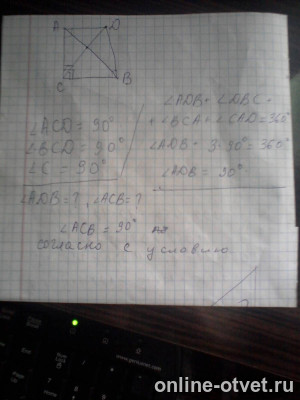 A D
C B
∠ACD = 90°
∠BCD = 90°
∠C = 90°
∠ADB = ? , ∠ACB = ?
∠ADB + ∠DBC +
+ ∠BCA + ∠CAD = 360°
∠ADB + 3·90° = 360°
∠ADB = 90°
∠ACB = 90°
согласно с условию
online-otvet.ru